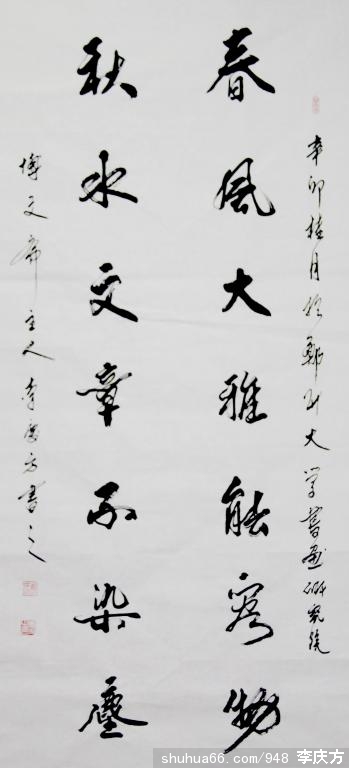 辛卯桂月於鄭州大學書畫研究院
春風大雅能容物
秋水文章不染塵
博文齋主人李慶方書之
shuhua66.com/948 李庆方